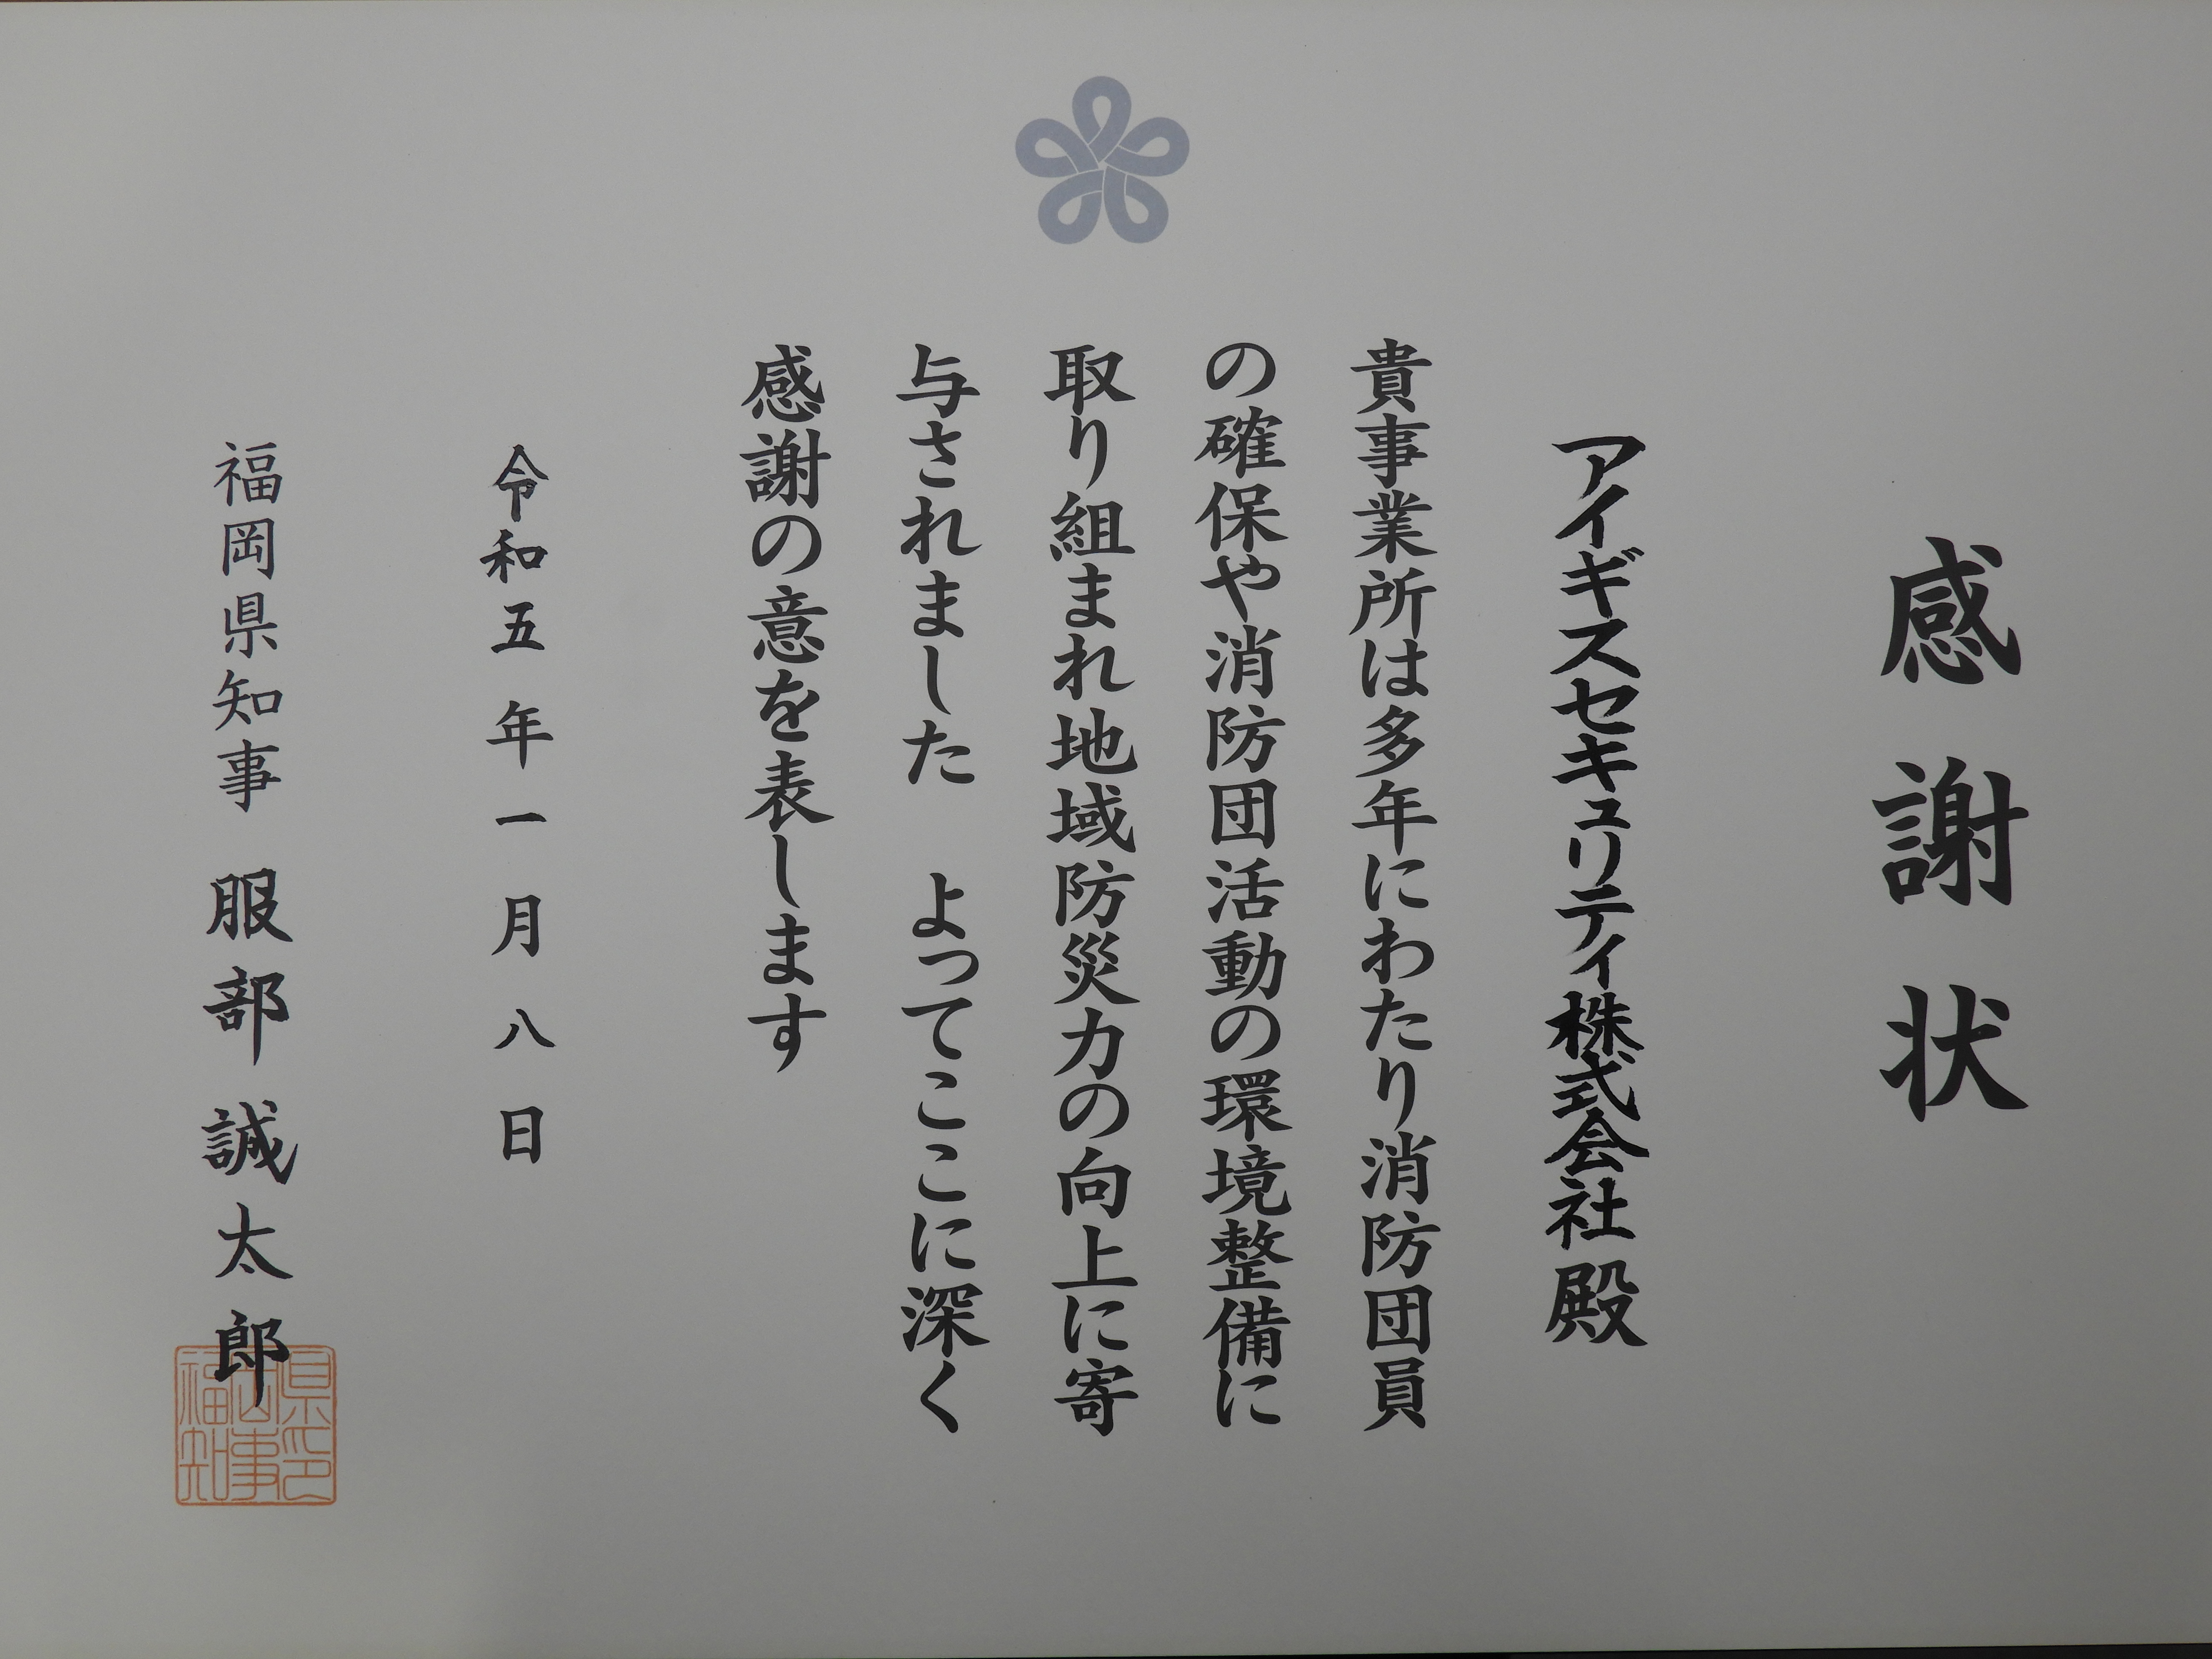 感謝状
アイギスセキュリティ株式会社 殿
貴事業所は多年にわたり消防団員
の確保や消防団活動の環境整備に
取り組まれ地域防災力の向上に寄
与されました　よってここに深く
感謝の意を表します
令和五年一月八日
福岡県知事 服部誠太郎
県印
岡事
福知